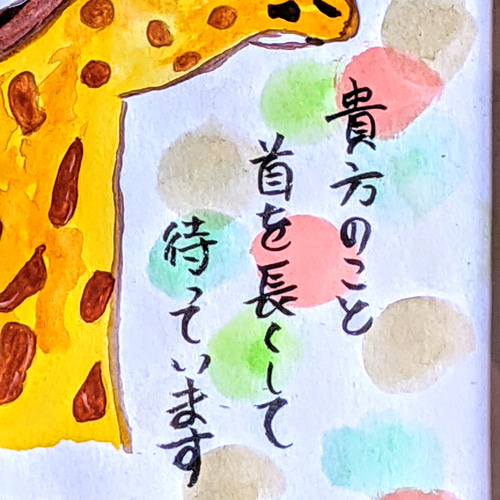 貴方のこと
首を長くして
待っています